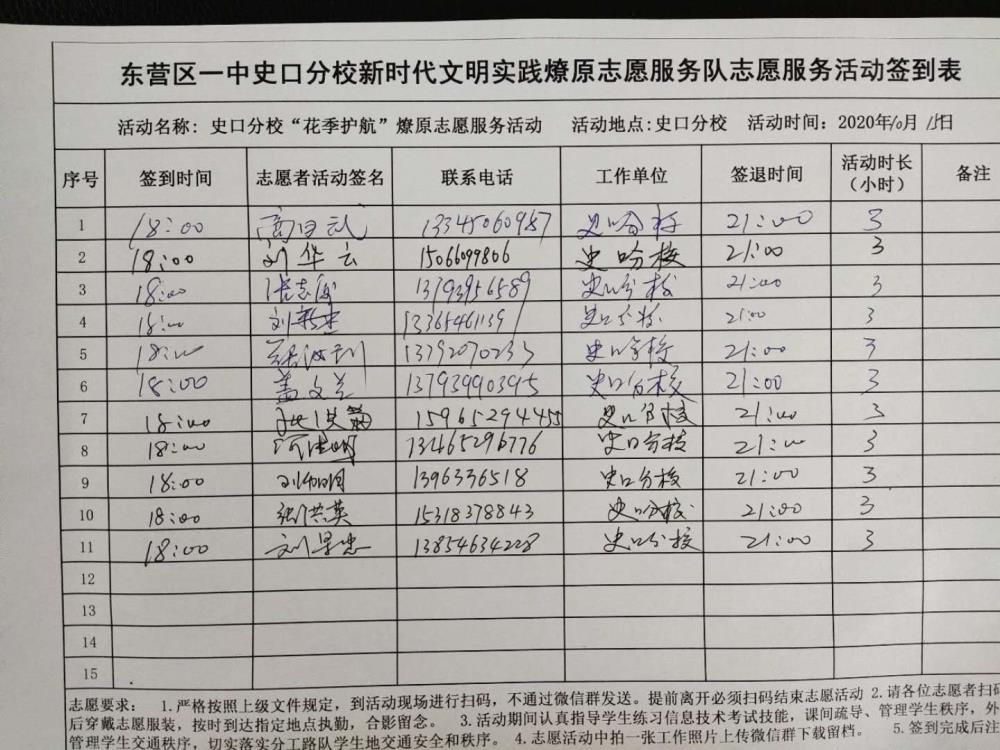 东营区一中史口分校新时代文明实践燎原志愿服务队志愿服务活动签到表
活动名称: 史口分校“花季护航”燎原志愿服务活动 活动地点:史口分校 活动时间: 2020年10月15日
序号 签到时间 志愿者活动签名 联系电话 工作单位 签退时间 活动时长(小时) 备注
1 18:00 13345060987 史口分校 21:00 3
2 18:00 刘华云 15066099806 史口分校 21:00 3
3 18:00 13793956589 史口分校 21:00 3
4 18:00 13365461139 史口分校 21:00 3
5 18:00 13792070233 史口分校 21:00 3
6 18:00 盖文兰 13793990395 史口分校 21:00 3
7 18:00 15965294455 史口分校 21:00 3
8 18:00 13465296776 史口分校 21:00 3
9 18:00 1396336518 史口分校 21:00 3
10 18:00 张洪英 15318378843 史口分校 21:00 3
11 18:00 刘景忠 13854634228 史口分校 21:00 3
12
13
14
15
志愿要求: 1.严格按照上级文件规定，到活动现场进行扫码，不通过微信群发送。提前离开必须扫码结束志愿活动 2.请各位志愿者扫码
后穿戴志愿服装，按时到达指定地点执勤，合影留念。 3.活动期间认真指导学生练习信息技术考试技能，课间疏导、管理学生秩序，外
管理学生交通秩序，切实落实分工路队学生地交通安全和秩序。 4.志愿活动中拍一张工作照片上传微信群下载留档。 5.签到完成后注